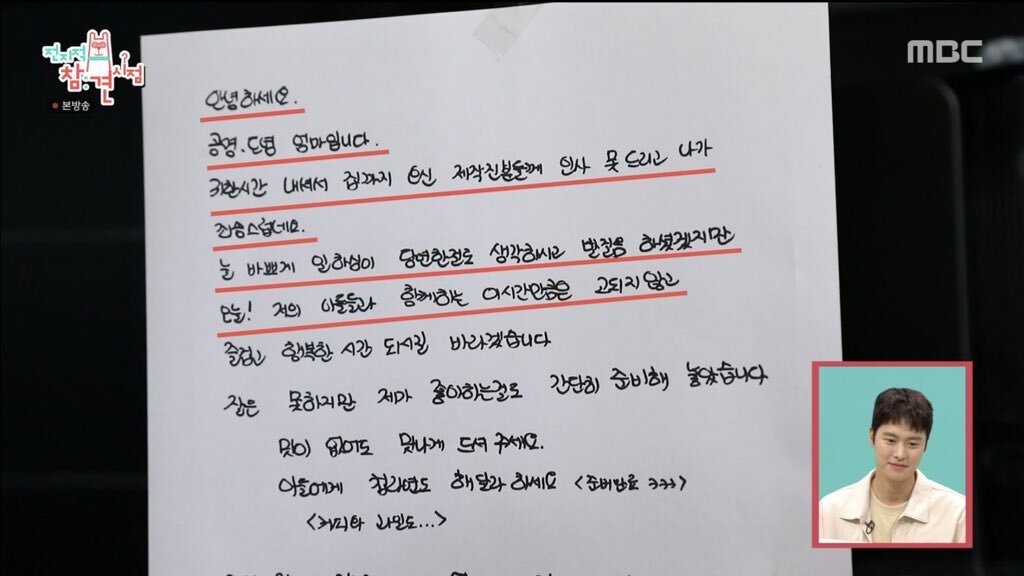 전지적
참견시점
본방송
MBC
안녕하세요.
공명·도영 엄마입니다.
귀한시간 내셔서 집까지 오신 제작진분들께 인사 못 드리고 나가
죄송스럽네요.
늘 바쁘게 일하심이 당연한걸로 생각하시고 발걸음 하셨겠지만
오늘! 저의 아들들과 함께하는 이시간만큼은 고되지않고
즐겁고 행복한 시간 되시길 바라겠습니다
잘은 못하지만 제가 좋아하는걸로 간단히 준비해 놓았습니다
맛이 없어도 맛나게 드셔 주세요.
아들에게 첨라면도 해달라 하세요 <준비완료 ㅋㅋㅋ>
<커피와 과일도...>